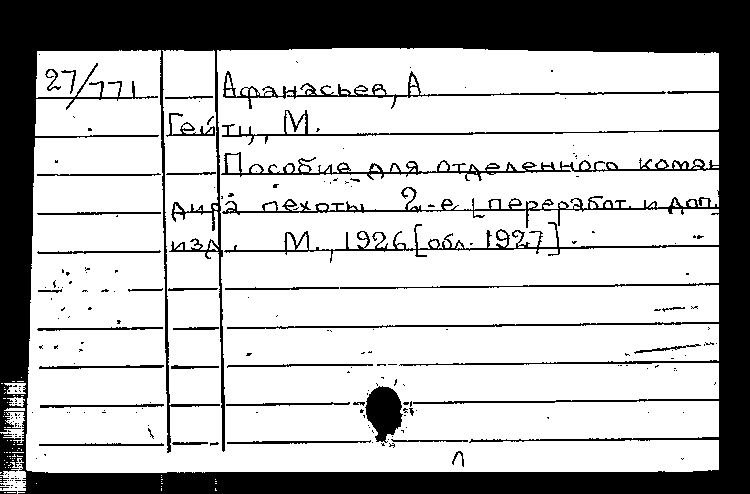 27/771 Афанасьев, А
Гейтц, М.
Пособие для отделенного коман
дира пехоты 2-е [переработ. и доп.
изд. М., 1926 [обл. 1927].